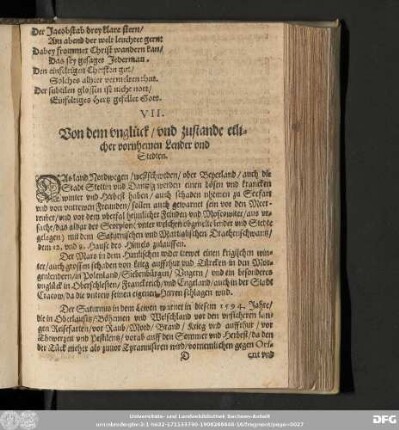 Der Jacobstab drey klare stern/
Am abend der welt leuchtet gern:
Dabey frommer Christ wandern kan/
Das sey gesaget Jederman.
Den einfältigen Christen gut/
Solches alhier vermelden thut.
Der subtilen glossen ist nicht noth/
Einfältiges Hertz gefellet Gott.
VII.
Von dem vnglück/ vnd zustande etli-
cher vornhemen Lender vnd
Stedten.
DAs land Nordwegen/ Beyerland/ auch die
Stadt Stettin vnd Dantzig werden einen bösen vnd krancken
winter vnd Herbest haben/ auch schaden nhemen zu Seefart
vnd von vntrewen freunden/ sollen auch gewarnet sein vor den Meer-
vnd vor dem oberfal heimlicher Feinden vnd Moscowiter/ aus vr-
sache/ das alhar der Scorpion/ vnter welchen Lender vnd Stedte
gelegen) mit dem Saturnischen vnd Martialischen Drachenschwantz/
dem 12. vnd 1. Hause des Himels zulauffen.
Der Mars in dem Hundischen wider drewet einen krigischen win-
ter/ auch grossen schaden von krieg auffrhur vnd Türcken in den Mor-
genlendern/ in Polenland/ Siebenbürgen/ Vngern/ vnd ein besonderes
vnglück in Oberschlesien/ Franckreich/ vnd Engeland/ auch in der Stadt
Cracow/ da die vntern seinen eigenen Herrn schlagen wird.
Der Saturnus in dem Lewen warnet in diesem 1594. Jahre/
die in Oberlausitz/ Böhemen vnd Welschland vor den vnsicheren lan-
gen Reisefarten/ vor Raub/ Mord/ Brand/ Krieg vnd auffrhur/ vor
Ehewergen vnd Pestilentz/ vorab auff den Sommer vnd Herbest/ da den
der Türck mehr als zuuor Tyrannisiren wird/ vornemlichen gegen Ori-
D
ent vnd
Universitäts- und Landesbibliothek Sachsen-Anhalt
DFG